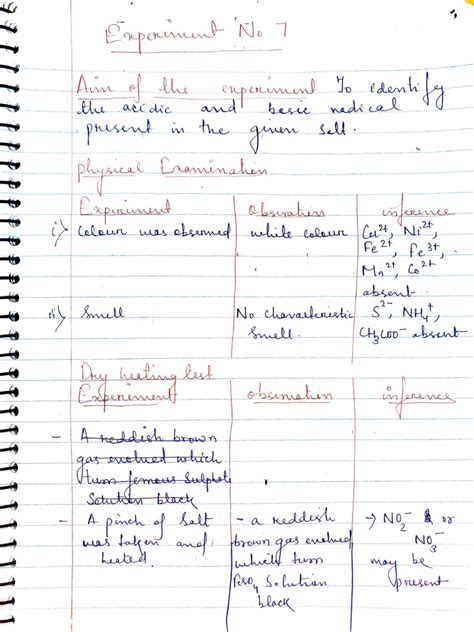 Experiment No 7
Aim of the experiment To identify
the acidic and basic radical
present in the given salt.
Physical Examination
Experiment
observation
inference
i) Colour was observed
white colour
Cu2+, Ni2+,
Fe2+, Fe3+,
Mn2+, Co2+
absent.
ii) Smell
No characteristic
smell.
S2-, NH4+,
CH3COO- absent
Dry heating test
Experiment
observation
inference
- A reddish brown
gas evolved which
turn ferrous sulphate
solution black
- A pinch of salt
was taken and
heated.
- a reddish
brown gas evolved
which turn
FeSO4 solution
black
→ NO2- or
NO3-
may be
present